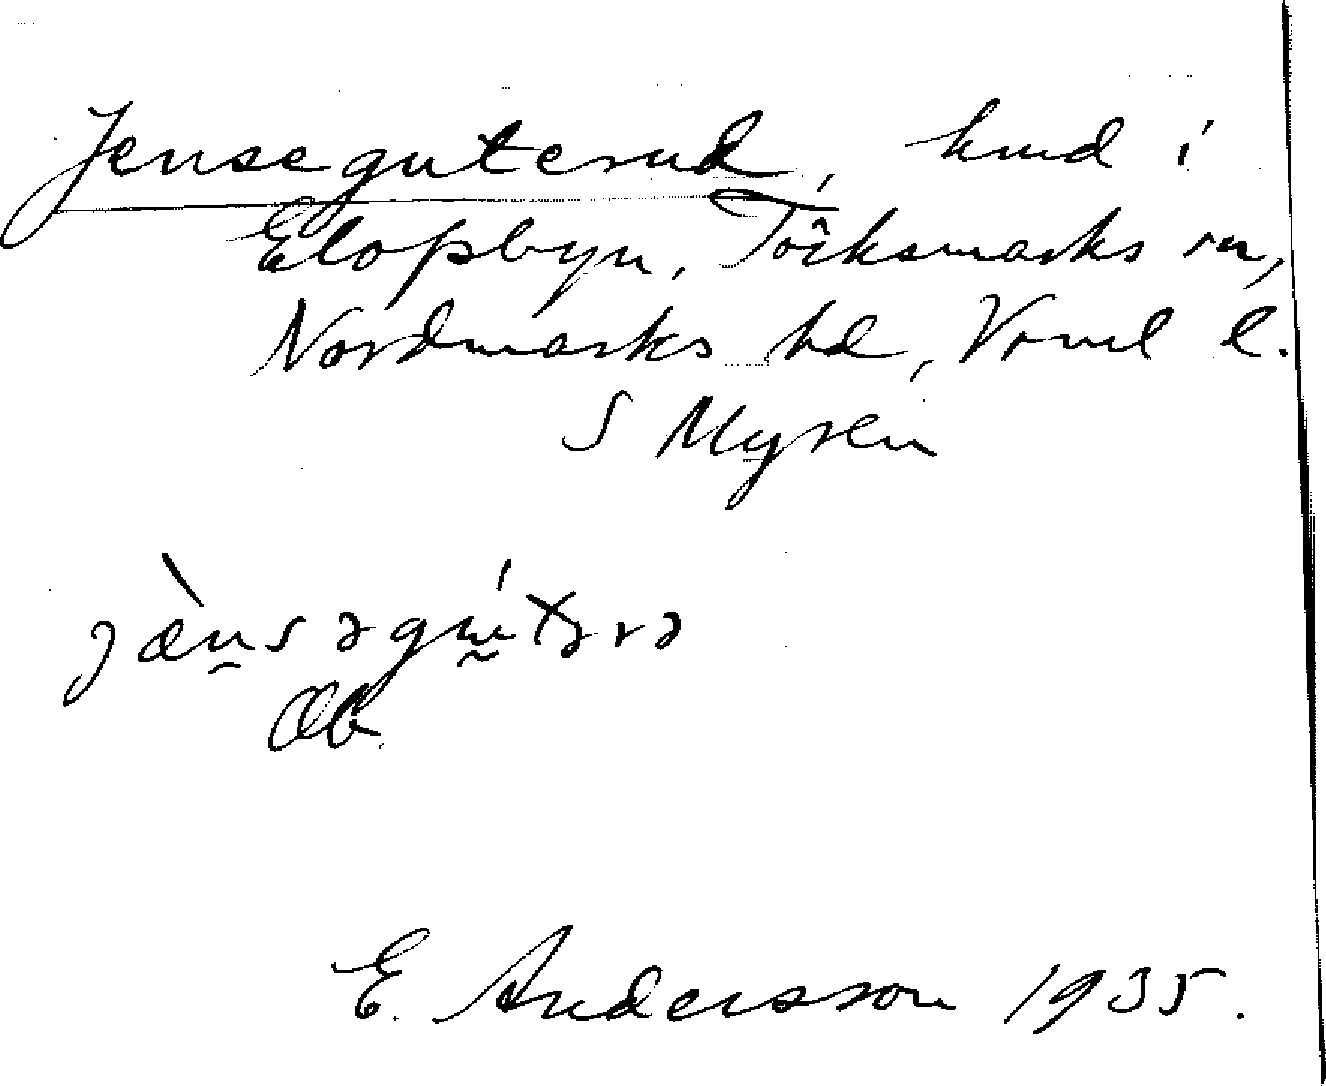 Jenseguterud, hmd i
Elopsbyn, Töcksmarks sn,
Nordmarks hd, Vrml l.
S Myren
jæ̀nsəgútərə
E. Andersson 1935.